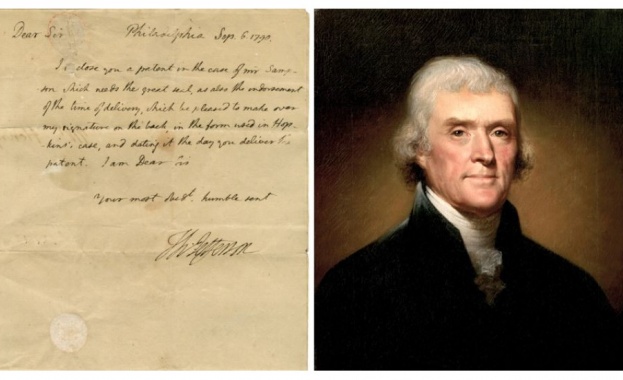 Dear Sir Philadelphia Sep. 6. 1790.
I close you a patent in the case of mr Samp-
son. which needs the great seal, as also the endorsement
of the time of delivery, which be pleased to make over
my signature on the back, in the form used in Hop-
kins's case, and dating it the day you deliver
patent. I am Dear Sir
Your most obedt. humble servt
Th Jefferson